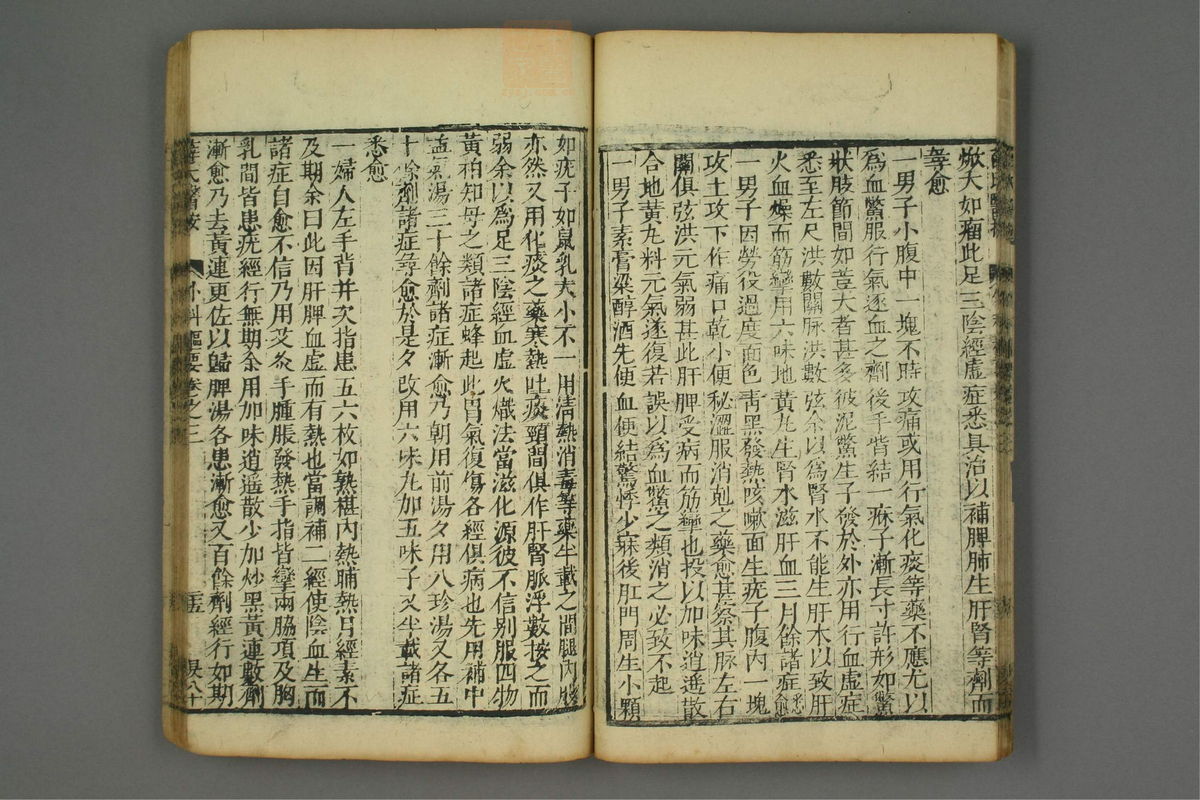 焮大如瘤此足三陰經虛症悉具治以補脾肺生肝腎等劑而
等愈
一男子小腹中一塊不時攻痛或用行氣化痰等藥不應尤以
為血鱉服行氣逐血之劑後手背結一痳子漸長寸許形如鱉
狀肢節間如荳大者甚多彼泥鱉生子發於外亦用行血虛症
悉至左尺洪數關脉洪數弦余以為腎水不能生肝木以致肝
火血燥而筋攣用六味地黃丸生腎水滋肝血三月餘諸症悉愈
一男子因勞役過度面色青黑發熱咳嗽面生疣子腹內一塊
攻土攻下作痛口乾小便秘澀服消剋之藥愈甚察其脉左右
關俱弦洪元氣弱甚此肝脾受病而筋攣也投以加味逍遙散
合地黃丸料元氣遂復若誤以為血鱉之類消之必致不起
一男子素膏粱醇酒先便血便結驚悸少寐後肛門周生小顆
如疣子如鼠乳大小不一用清熱消毒等藥半載之間腿內股
亦然又用化痰之藥寒熱吐痰頸間俱作肝腎脈浮數按之而
弱余以為足三陰經血虛火熾法當滋化源彼不信别服四物
黃柏知母之類諸症蜂起此胃氣復傷各經俱病也先用補中
益氣湯三十餘劑諸症漸愈乃朝用前湯夕用八珍湯又各五
十餘劑諸症尋愈於是夕改用六味丸加五味子又半載諸症
悉愈
一婦人左手背并次指患五六枚如熟椹內熱晡熱月經素不
及期余曰此因肝脾血虛而有熱也當調補二經使陰血生而
諸症自愈不信乃用艾灸手腫脹發熱手指皆攣兩脇項及胸
乳間皆患疣經行無期余用加味逍遙散少加炒黑黃連數劑
漸愈乃去黃連更佐以歸脾湯各患漸愈又百餘劑經行如期
薛氏醫按 外科樞要卷之三